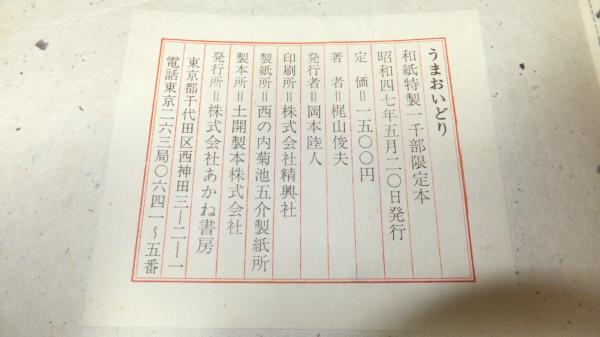 うまおいどり
和紙特製一千部限定本
昭和四七年五月二〇日発行
定価＝一五〇〇円
著者＝梶山俊夫
発行者＝岡本陸人
印刷所＝株式会社精興社
製紙所＝西の内菊池五介製紙所
製本所＝土開製本株式会社
発行所＝株式会社あかね書房
東京都千代田区西神田三―二―一
電話東京二六三局〇六四一～五番